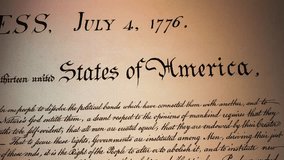 ESS, JULY 4, 1776.
thirteen united States of America,
one people to dissolve the political bands which have connected them with another, and to
Nature's God entitle them, a decent respect to the opinions of mankind requires that they
to be self-evident, that all men are created equal, that they are endowed by their
That to secure these rights, Governments are instituted among Men, deriving their just
of these ends, it is the Right of the People to alter or to abolish it, and to institute